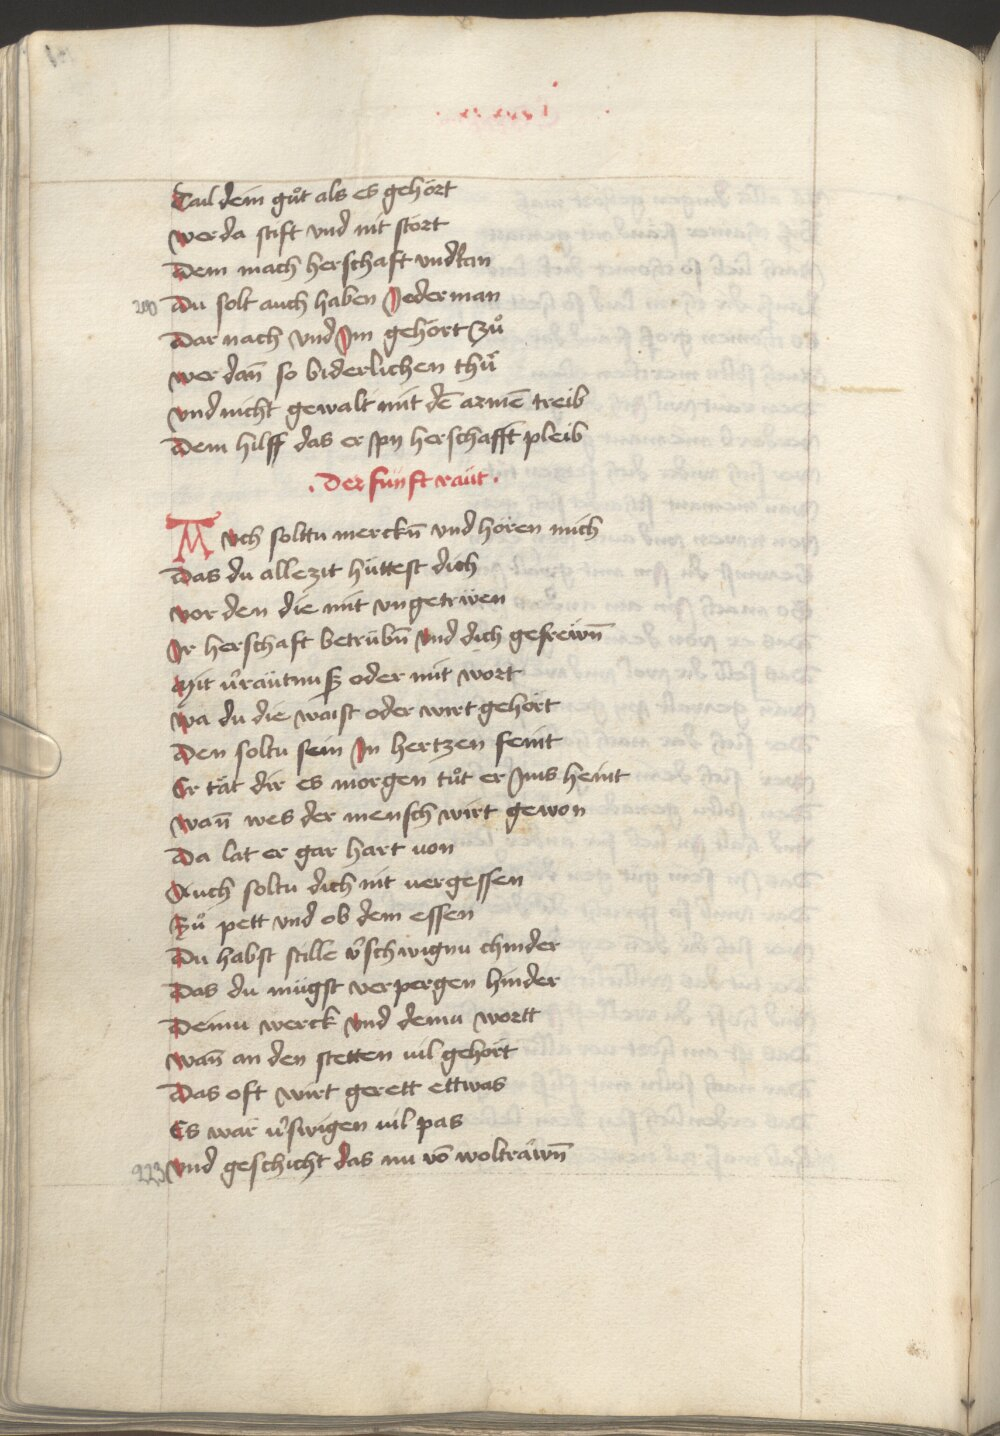 Tail dein guͦt als es gehört
wer da stift vnd nit stört
Dem mach herschaft vndtan
200 Du solt auch haben Jederman
Dar nach vnd Jm gehört zuͦ
wer dan̄ so biderlichen thuͦ
vnd nicht gewalt mit dē armē treib
Dem hilff das er spy herschafft pleib
· Der fünft raüt ·
Auch solttu merckn̄ vnd hören mich
Das du allezit hüttest dich
vor den die mit vngetrüen
Jr herschaft betrübn̄ vnd dich gefreẅn̄
Mit v̓räütnuß oder mit wort
wa du die waist oder wirt gehört
Den soltu sein Jn hertzen feint
Er tät dir es morgen tuͦt er Jms heint
wan̄ wes der mensch wirt gewon
Da lat er gar hart uon
Auch soltu dich nit uergessen
Zuͦ pett vnd ob dem essen
Du habst stille v̓schwignu chinder
Das du mügst verpergen hinder
Deinu werck vnd deinu wortt
wan̄ an den stetten uil gehört
Das oft wirt gerett ettwas
Es wär v̓swigen uil pas
223 vnd geschicht das nu vō woltraẅn̄